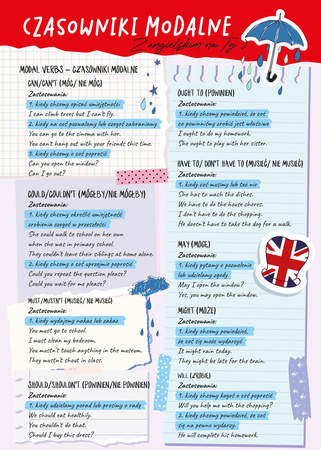 CZASOWNIKI MODALNE
Z angielskim na Ty
MODAL VERBS – CZASOWNIKI MODALNE
CAN/CAN'T (MÓC/ NIE MÓC)
Zastosowania:
1. kiedy chcemy opisać umiejętności
I can climb trees but I can't fly.
2. kiedy na coś pozwalamy lub czegoś zabraniamy
You can go to the cinema with her.
You can't hang out with your friends this time.
3. kiedy chcemy o coś poprosić
Can you open the window?
Can I go out?
COULD/COULDN'T (MÓGŁBY/NIE MÓGŁBY)
Zastosowania:
1. kiedy chcemy określić umiejętność
zrobienia czegoś w przeszłości
She could walk to school on her own
when she was in primary school.
They couldn't leave their siblings at home alone.
2. kiedy chcemy o coś uprzejmie poprosić
Could you repeat the question please?
Could you wait for me please?
MUST/MUSTN'T (MUSIEĆ/ NIE MUSIEĆ)
Zastosowania:
1. kiedy wydajemy nakaz lub zakaz
You must go to school.
I must clean my bedroom.
You mustn't touch anything in the museum.
They mustn't shout in class.
SHOULD/SHOULDN'T (POWINIEN/NIE POWINIEN)
Zastosowania:
1. kiedy udzielamy porad lub prosimy o radę
We should eat healthily.
You shouldn't do that.
Should I buy this dress?
OUGHT TO (POWINIEN)
Zastosowania:
1. kiedy chcemy powiedzieć, że coś
co powinniśmy zrobić jest właściwe
I ought to do my homework.
She ought to play with her sister.
HAVE TO/ DON'T HAVE TO (MUSIEĆ/ NIE MUSIEĆ)
Zastosowania:
1. kiedy coś musimy lub też nie
She has to wash the dishes.
We have to do the house shores.
I don't have to do the shopping.
He doesn't have to take the dog for a walk.
MAY (MOGĘ)
Zastosowania:
1. kiedy pytamy o pozwolenie
lub udzielamy zgody
May I open the window?
Yes, you may open the window.
MIGHT (MOŻE)
Zastosowania:
1. kiedy chcemy powiedzieć,
że coś się może wydarzyć
It might rain today.
They might be late for the train.
WILL (ZROBIĘ)
Zastosowania:
1. kiedy chcemy kogoś o coś poprosić
Will you help me with the shopping?
2. kiedy chcemy powiedzieć, że coś
się na pewno wydarzy.
He will complete his homework.